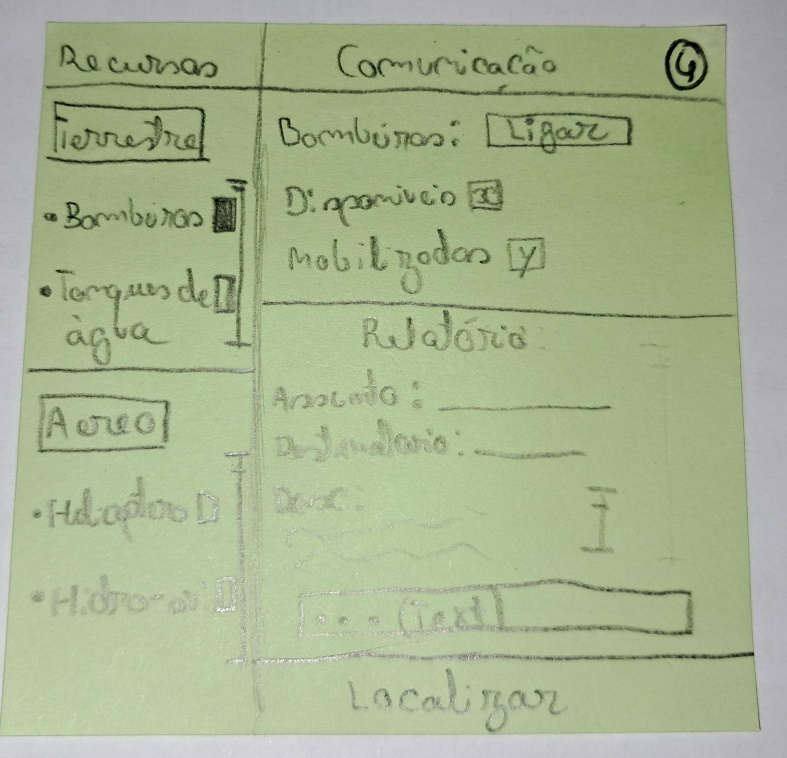 Recursos
Terrestre
• Bombeiros
• Tanques de
água
Aereo
• Helicoptero
• Hidro-avi
Comunicação
4
Bombeiros: Ligar
Disponiveis x
Mobilizados y
Relatório:
Assunto:
Destinatario:
Desc:
... (Text)
Localizar